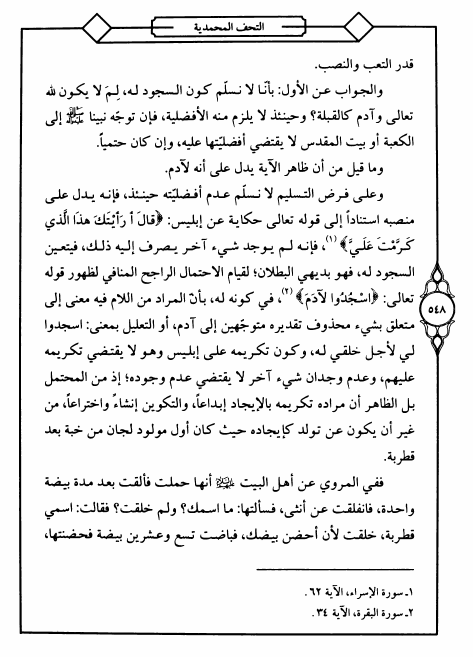 التحف المحمدية
قدر التعب والنصب.
والجواب عن الأول: بأنّا لا نسلّم كون السجود له، لِمَ لا يكون لله
تعالى وآدم كالقبلة؟ وحينئذ لا يلزم منه الأفضلية، فإن توجّه نبينا ﷺ إلى
الكعبة أو بيت المقدس لا يقتضي أفضليّتها عليه، وإن كان حتمياً.
وما قيل من أن ظاهر الآية يدل على أنه لآدم.
وعلى فرض التسليم لا نسلّم عدم أفضليّته حينئذ، فإنه يدل على
منصبه استناداً إلى قوله تعالى حكاية عن إبليس: ﴿قالَ أَ رَأَيْتَكَ هذَا الَّذي
كَرَّمْتَ عَلَيَّ﴾ (١)، فإنه لم يوجد شيء آخر يصرف إليه ذلك، فيتعين
السجود له، فهو بديهي البطلان؛ لقيام الاحتمال الراجح المنافي لظهور قوله
تعالى: ﴿اسْجُدُوا لآدَمَ﴾ (٢)، في كونه له، بأنّ المراد من اللام فيه معنى إلى
متعلق بشيء محذوف تقديره متوجّهين إلى آدم، أو التعليل بمعنى: اسجدوا
لي لأجل خلقي له، وكون تكريمه على إبليس وهو لا يقتضي تكريمه
عليهم، وعدم وجدان شيء آخر لا يقتضي عدم وجوده؛ إذ من المحتمل
بل الظاهر أن مراده تكريمه بالإيجاد إبداعاً، والتكوين إنشاءً واختراعاً، من
غير أن يكون عن تولد كإيجاده حيث كان أول مولود لجان من خبة بعد
قطربة.
ففي المروي عن أهل البيت عليهم السلام أنها حملت فألقت بعد مدة بيضة
واحدة، فانفلقت عن أنثى، فسألتها: ما اسمك؟ ولم خلقت؟ فقالت: اسمي
قطربة، خلقت لأن أحضن بيضك، فباضت تسع وعشرين بيضة فحضنتها،
٥٤٨
١ـ سورة الإسراء، الآية ٦٢.
٢ـ سورة البقرة، الآية ٣٤.